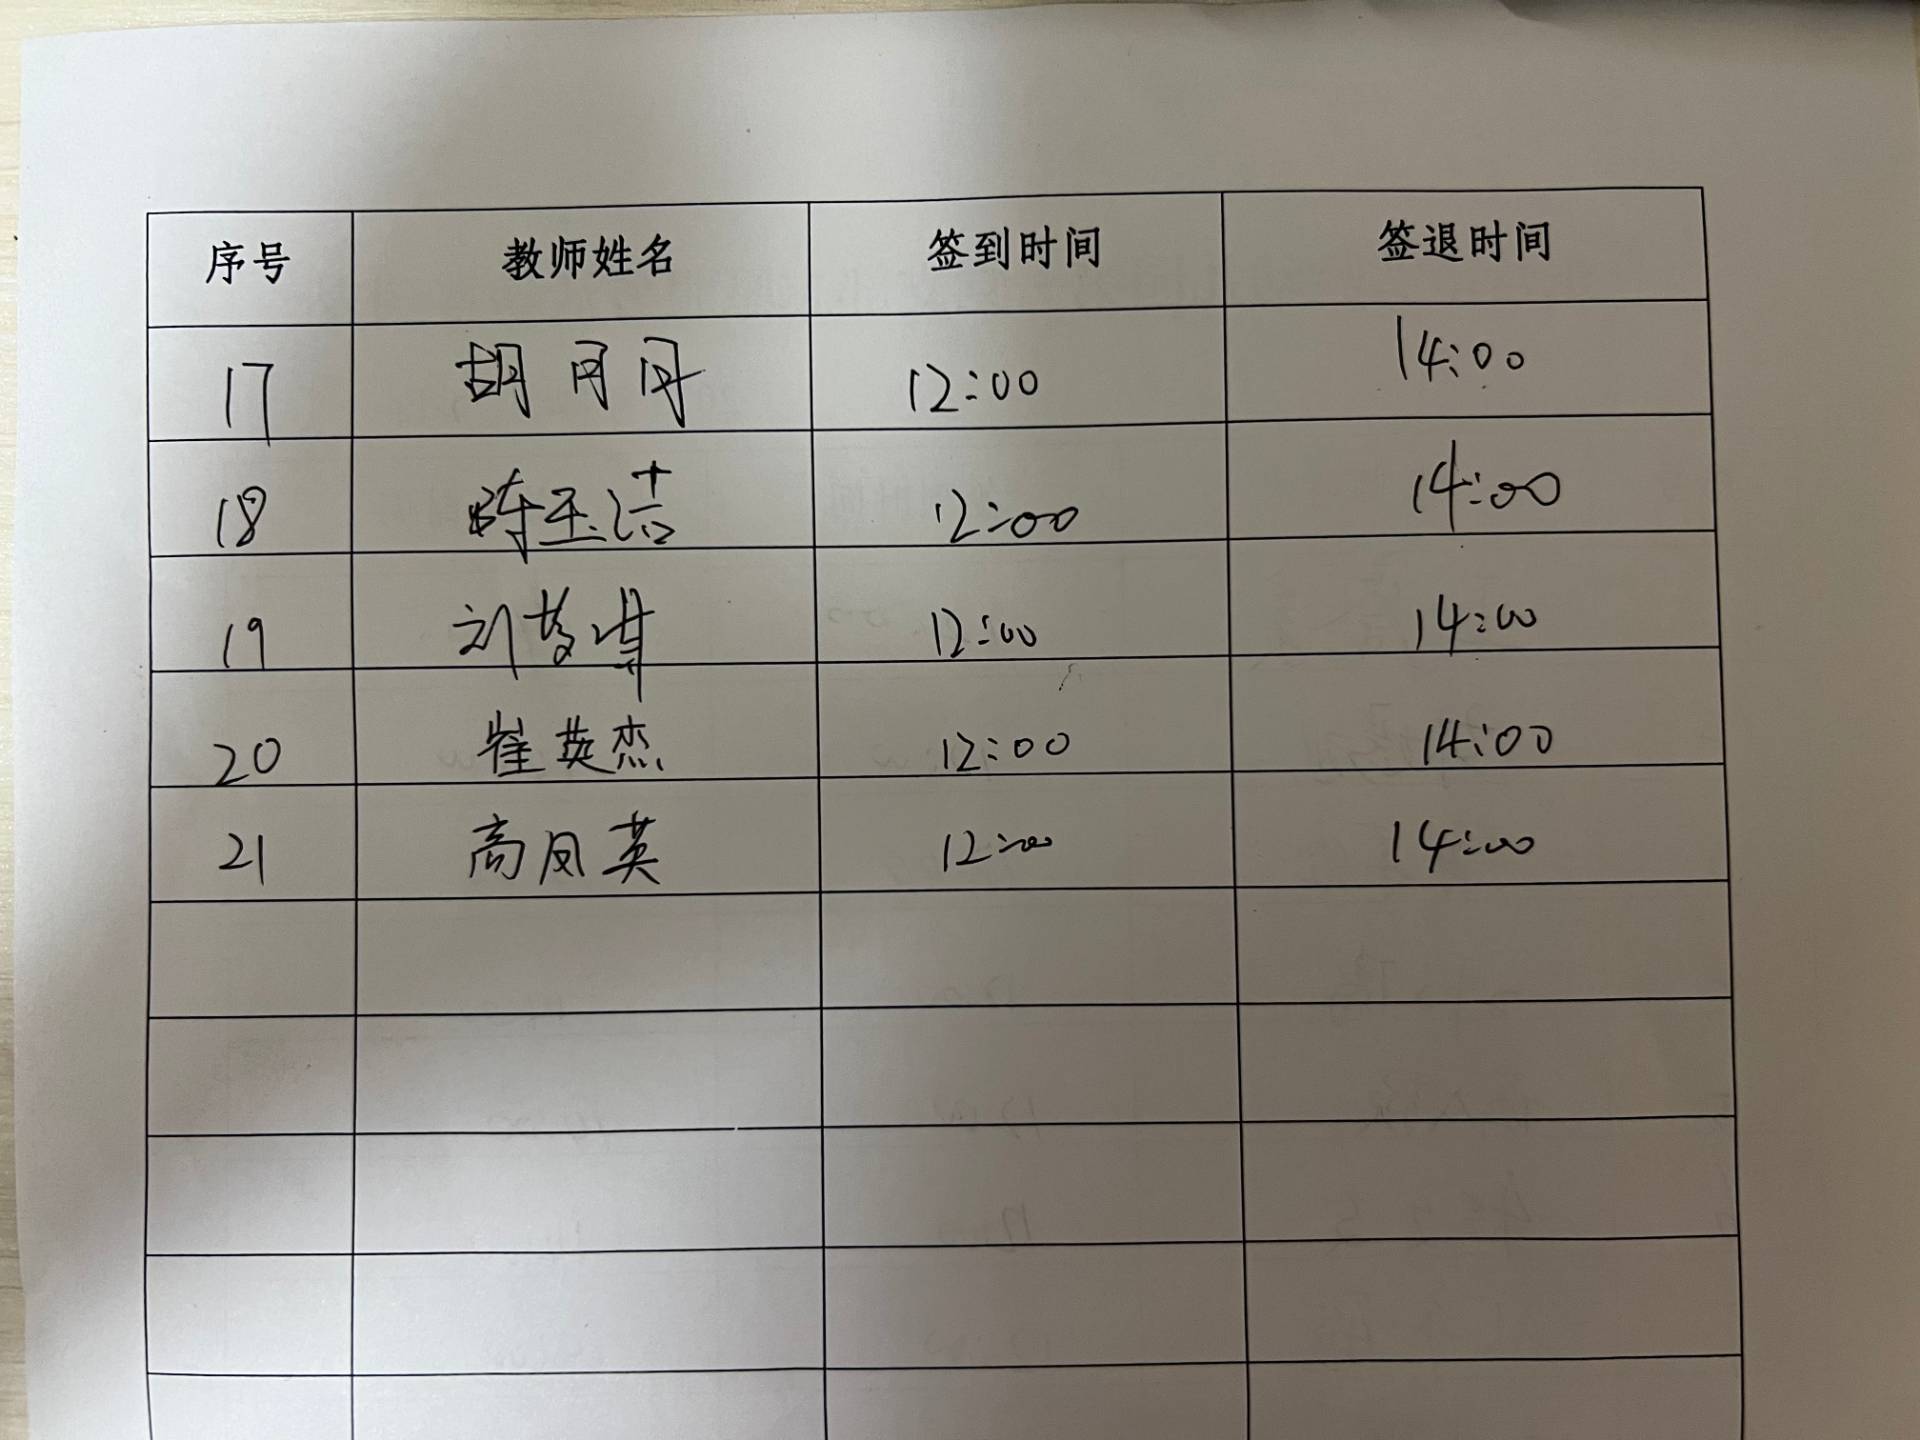 序号 教师姓名 签到时间 签退时间
17 胡月丹 12:00 14:00
18 陈玉洁 12:00 14:00
19 刘梦琪 12:00 14:00
20 崔英杰 12:00 14:00
21 高凤英 12:00 14:00